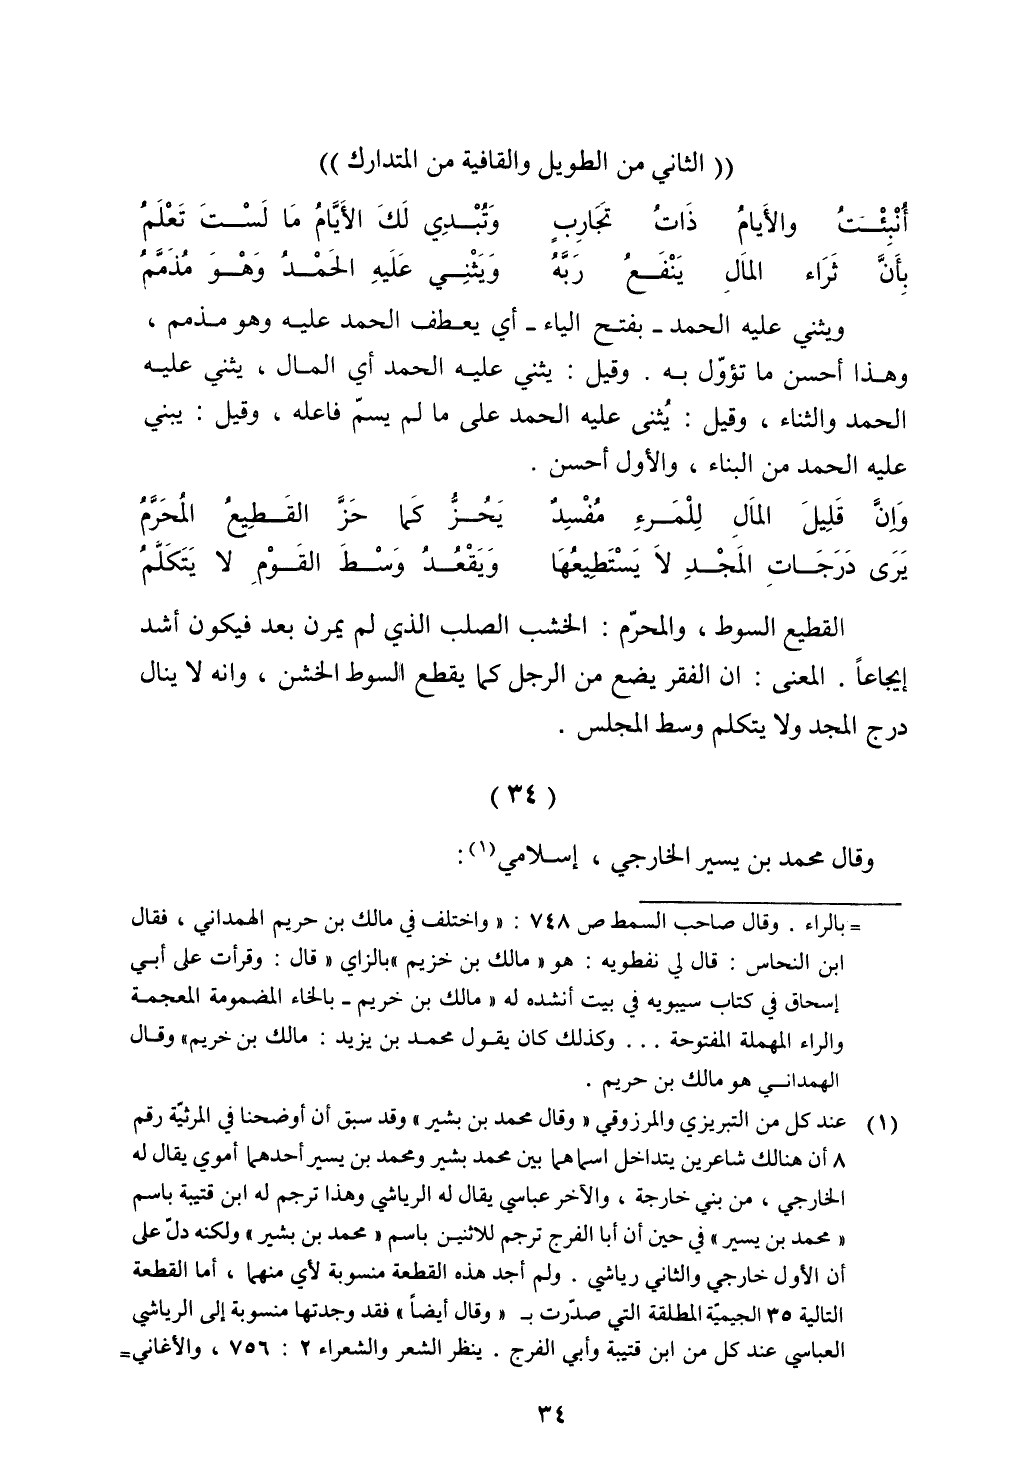 (( الثاني من الطويل والقافية من المتدارك ))
أُنْبِئْتُ والأَيامُ ذَاتُ تَجَارِبٍ وَتُبْدِي لَكَ الأَيَّامُ مَا لَسْتَ تَعْلَمُ
بِأَنَّ ثَرَاء المَالِ يَنْفَعُ رَبَّهُ وَيَثْنِي عَلَيهِ الحَمْدُ وَهْوَ مُذَمَّمُ
ويثني عليه الحمد ـ بفتح الياء ـ أي يعطف الحمد عليه وهو مذمم ،
وهذا أحسن ما تؤوّل به . وقيل : يثني عليه الحمد أي المال ، يثني عليه
الحمد والثناء ، وقيل : يُثنى عليه الحمد على ما لم يسمّ فاعله ، وقيل : يبني
عليه الحمد من البناء ، والأول أحسن .
وَإِنَّ قَلِيلَ المَالِ لِلْمَرءِ مُفْسِدٌ يَحُزُّ كَما حَزَّ القَطِيعُ المُحَرَّمُ
يَرَى دَرَجَاتِ المَجْدِ لاَ يَسْتَطِيعُهَا وَيَقْعُدُ وَسْطَ القَوْمِ لا يَتَكَلَّمُ
القطيع السوط ، والمحرّم : الخشب الصلب الذي لم يمرن بعد فيكون أشد
إيجاعاً . المعنى : ان الفقر يضع من الرجل كما يقطع السوط الخشن ، وانه لا ينال
درج المجد ولا يتكلم وسط المجلس .
( ٣٤ )
وقال محمد بن يسير الخارجي ، إسلامي(١) :
= بالراء . وقال صاحب السمط ص ٧٤٨ : « واختلف في مالك بن حريم الهمداني ، فقال
ابن النحاس : قال لي نفطويه : هو « مالك بن خزيم »بالزاي « قال : وقرأت على أبي
إسحاق في كتاب سيبويه في بيت أنشده له « مالك بن خريم ـ بالخاء المضمومة المعجمة
والراء المهملة المفتوحة ... وكذلك كان يقول محمد بن يزيد : مالك بن خريم» وقال
الهمداني هو مالك بن حريم .
(١) عند كل من التبريزي والمرزوقي « وقال محمد بن بشير » وقد سبق أن أوضحنا في المرثيّة رقم
٨ أن هنالك شاعرين يتداخل اسماهما بين محمد بشير ومحمد بن يسير أحدهما أموي يقال له
الخارجي ، من بني خارجة ، والآخر عباسي يقال له الرياشي وهذا ترجم له ابن قتيبة باسم
« محمد بن يسير » في حين أن أبا الفرج ترجم للاثنين باسم « محمد بن بشير » ولكنه دلّ على
أن الأول خارجي والثاني رياشي . ولم أجد هذه القطعة منسوبة لأي منهما ، أما القطعة
التالية ٣٥ الجيميّة المطلقة التي صدّرت بـ « وقال أيضاً » فقد وجدتها منسوبة إلى الرياشي
العباسي عند كل من ابن قتيبة وأبي الفرج . ينظر الشعر والشعراء ٢ : ٧٥٦ ، والأغاني=
٣٤